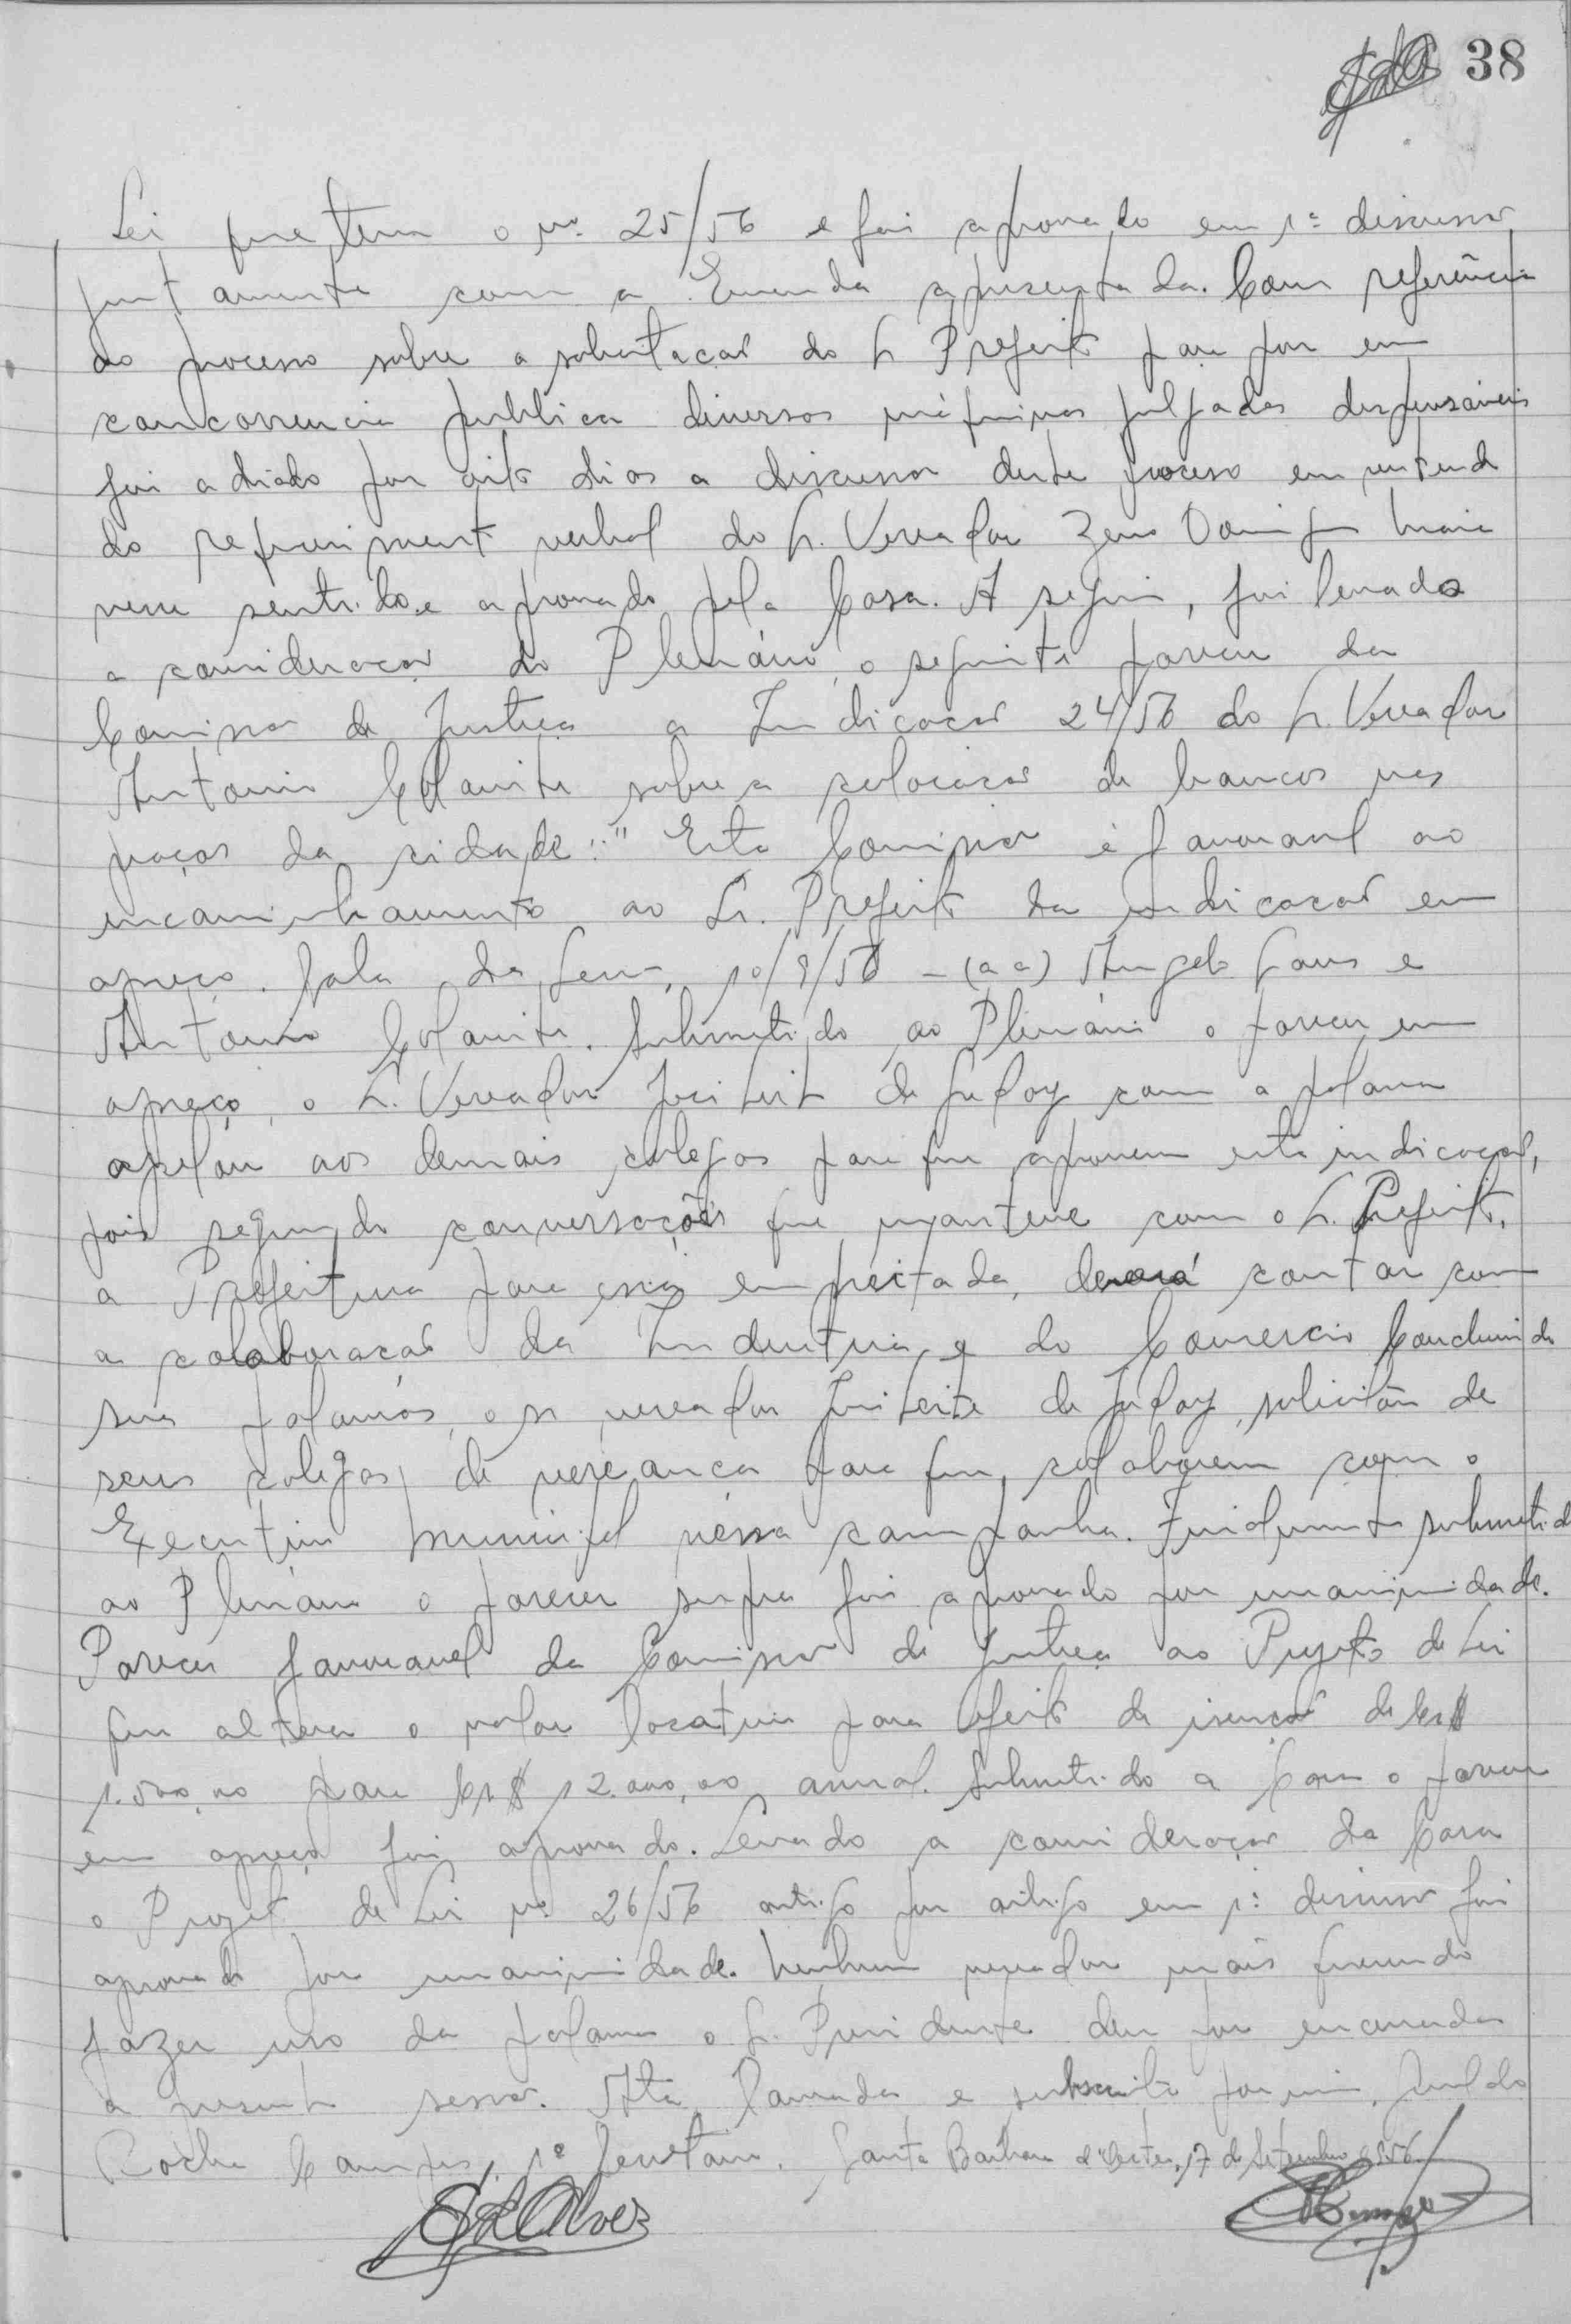 38
Lei que tem o nº 25/56 e foi aprovado em 1ª discussão
juntamente com a Emenda apresentada. Com referência
ao processo sobre a solicitação do Sr. Prefeito para por em
concorrencia publica diversos próprios julgados dispensáveis
foi adiado por oito dias a discussão deste processo em virtude
do requerimento verbal do Sr. Vereador Zeno Domingos Maia
nesse sentido e aprovado pela Casa. A seguir, foi levado
a consideração do Plenário, o seguinte parecer da
Comissão de Justiça a Indicação 24/56 do Sr. Vereador
Antonio sobre a colocação de bancos nas
praças da cidade: "Esta Comissão é favoravel ao
encaminhamento ao Sr. Prefeito da indicação em
apreço. Sala das Sessões, 10/9/56 - (a a) Angelo e
Antonio . Submetido ao Plenário o parecer em
apreço, o Sr. Vereador Leite de Godoy com a palavra
apelou aos demais colegas para que aprovem esta indicação,
pois segundo conversações que manteve com o Sr. Prefeito,
a Prefeitura para essa empreitada, deverá contar com
a colaboração da Industria e do Comercio Concluindo
suas palavras, o sr vereador Leite de Godoy, solicitou de
seus colegas de vereança para que colaborem com o
Executivo Municipal nessa campanha. Finalmente submetido
ao Plenário o parecer supra foi aprovado por unanimidade.
Parecer favoravel da Comissão de Justiça ao Projeto de Lei
que altera o valor locativo para efeito de isenção de Cr$
1.500,00 para Cr$ 12.000,00 anual. Submetido a Casa o parecer
em apreço foi aprovado. Levado a consideração da Casa
o Projeto de Lei nº 26/56 artigo por artigo em 1ª discussão foi
aprovado por unanimidade. Nenhum vereador mais querendo
fazer uso da palavra o Sr. Presidente deu por encerrada
a presente sessão. Ata lavrada e subscrita por mim,
Rocha Campos, 1º Secretário. Santa Barbara d'Oeste, 17 de Setembro 1956
Alves